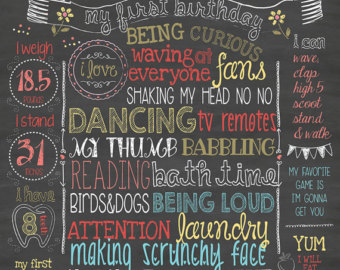 my first birthday
I weigh
18.5
POUNDS
I stand
31
INCHES
I have
8
teeth
my first
i love
BEING CURIOUS
waving at
everyone fans
SHAKING MY HEAD NO NO
DANCING tv remotes
MY THUMB BABBLING
READING bath time
BIRDS&DOGS BEING LOUD
ATTENTION laundry
making scrunchy face
I can
wave,
clap
high 5
scoot
stand
& walk
MY FAVORITE
GAME IS
I'M GONNA
GET YOU
YUM
I WILL
EAT